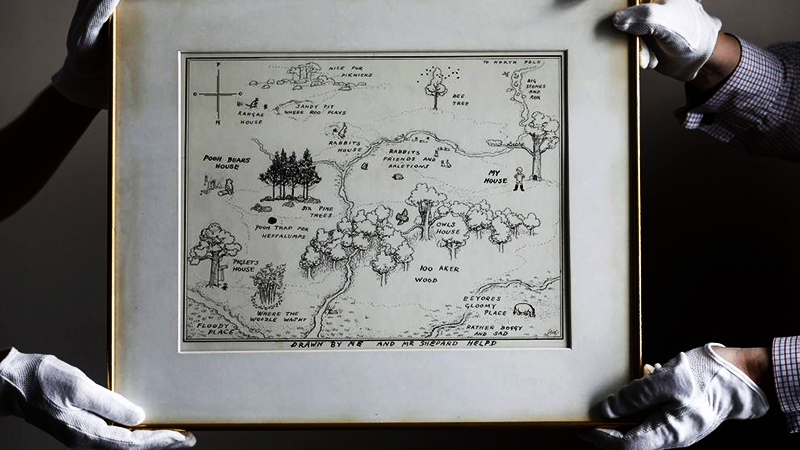 P
O O
H
NICE FOR
PIKNICKS
BEE
TREE
TO NORTH POLE
BIG
STONES
AND
ROX
KANGAS
HOUSE
SANDY PIT
WHERE ROO PLAYS
RABBITS
HOUSE
RABBITS
FRIENDS AND
RALETIONS
POOH BEARS
HOUSE
MY
HOUSE
SIX PINE
TREES
POOH TRAP FOR
HEFFALUMPS
OWLS
HOUSE
PIGLETS
HOUSE
100 AKER
WOOD
WHERE THE
WOOZLE WASNT
FLOODY
PLACE
EEYORES
GLOOMY
PLACE
RATHER BOGGY
AND SAD
DRAWN BY ME AND MR SHEPARD HELPD